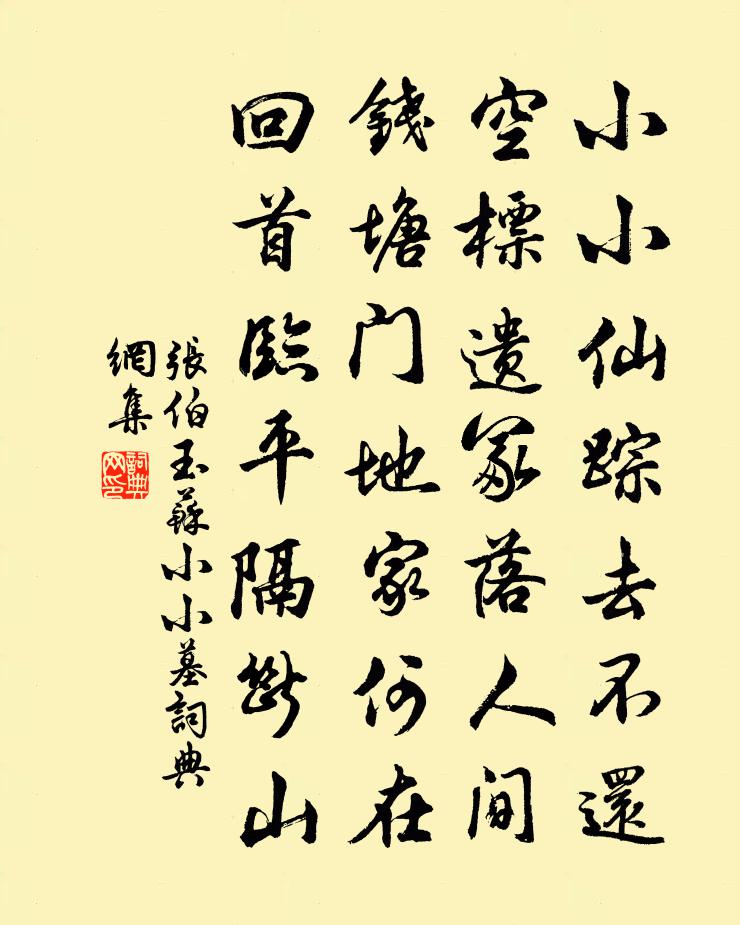 小小仙踪去不還
空標遺冢落人間
錢塘门地家何在
回首臨平隔斷山
張伯玉蘇小小墓詞典
網集
詞典
网印